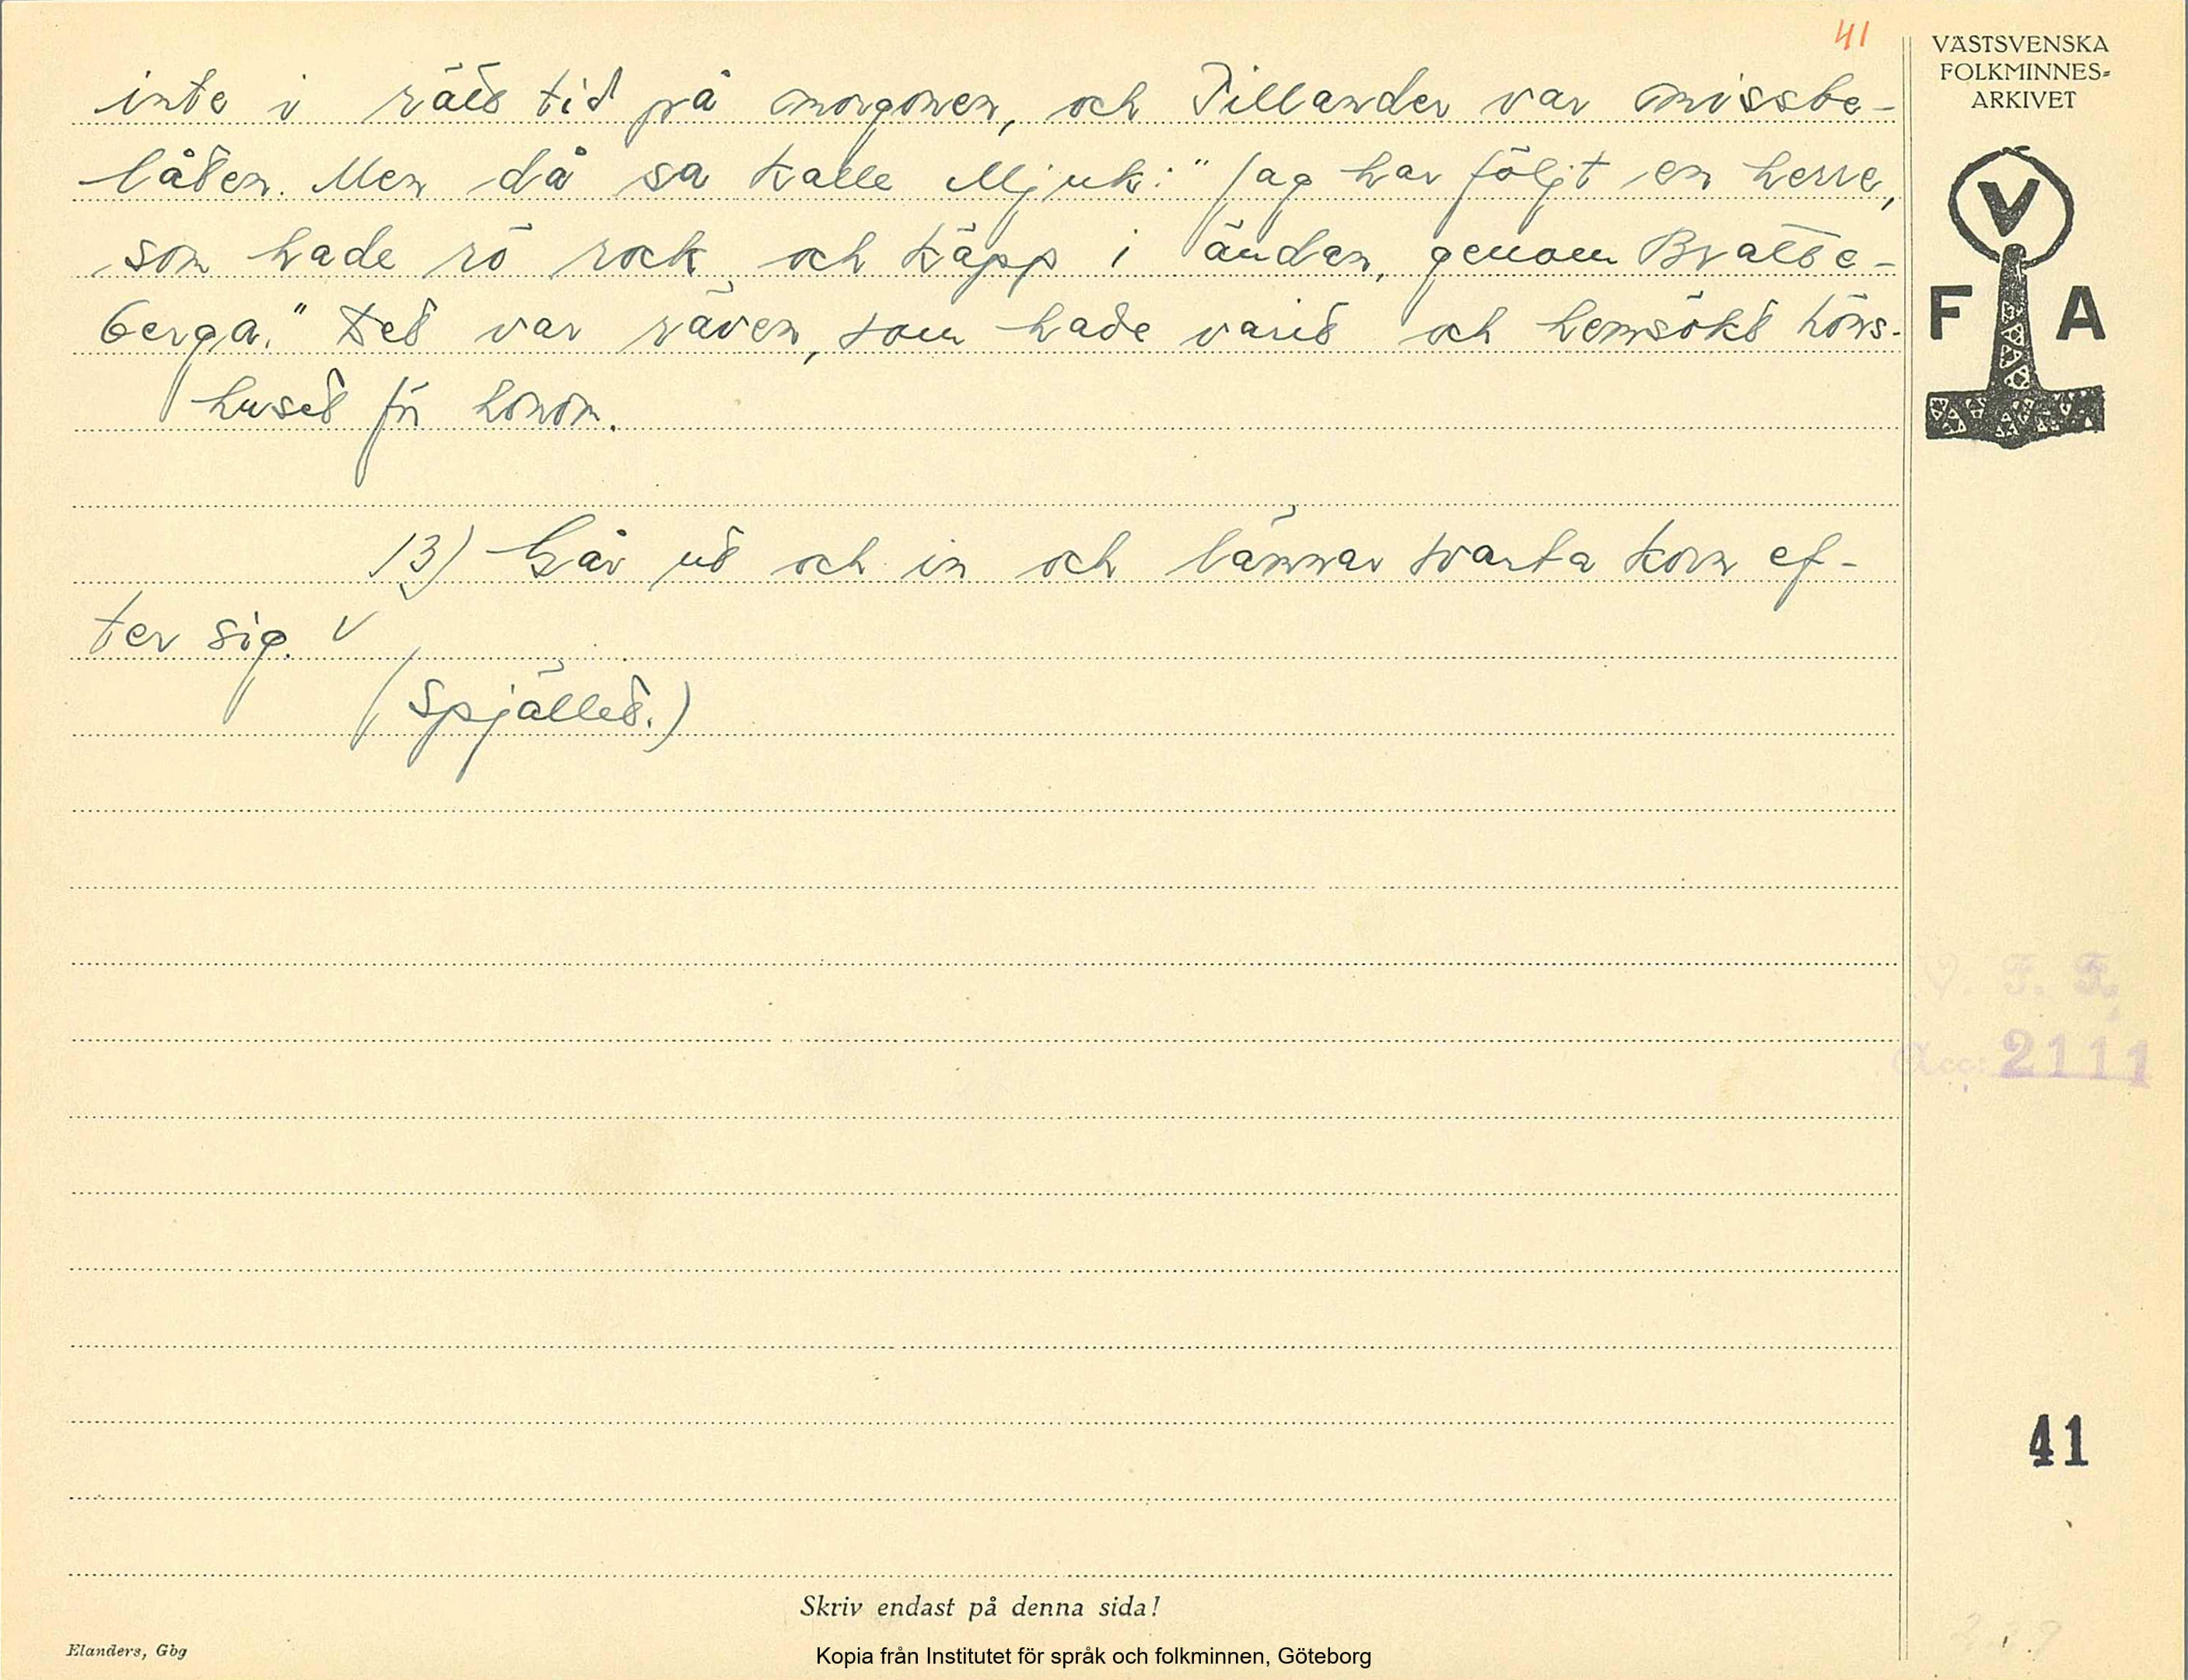 41
VÄSTSVENSKA
FOLKMINNES=
ARKIVET
inte i rätt tid på morgonen, och Tillander var missbe-
låten. Men då sa Kalle Mjuk: "Jag har följt en herre,
som hade rö rock och käpp i ändan, genom Bratte-
berga." Det var räven, som hade varit och hemsökt höns-
huset för honom.
V
F A
13) Går ut och in och lämnar svarta korn ef-
ter sig. V
(Spjället.)
V. F. F.
Acc: 2111
41
Skriv endast på denna sida!
Elanders, Gbg
Kopia från Institutet för språk och folkminnen, Göteborg